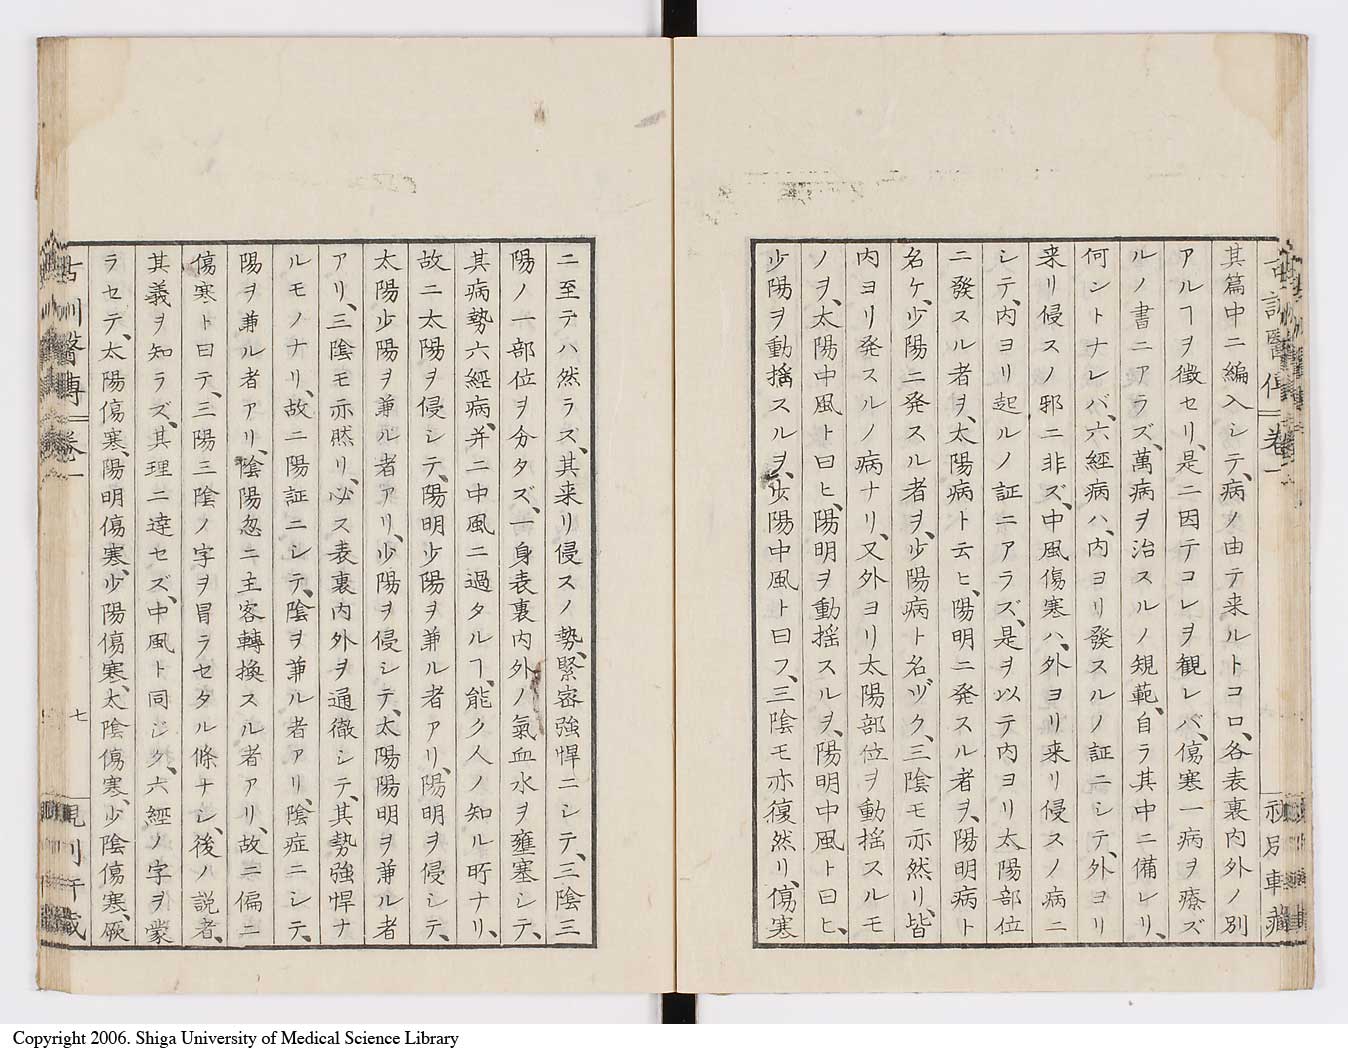 其篇中ニ編入シテ、病ノ由テ来ルトコロ、各表裏内外ノ別
アルヿヲ徴セリ、是ニ因テコレヲ観レバ、傷寒一病ヲ療ズ
ルノ書ニアラズ、萬病ヲ治スルノ規範、自ラ其中ニ備レリ、
何ントナレバ、六經病ハ、内ヨリ發スルノ証ニシテ、外ヨリ
来リ侵スノ邪ニ非ズ、中風傷寒ハ、外ヨリ来リ侵スノ病ニ
シテ、内ヨリ起ルノ証ニアラズ、是ヲ以テ内ヨリ太陽部位
ニ發スル者ヲ、太陽病ト云ヒ、陽明ニ発スル者ヲ、陽明病ト
名ケ、少陽ニ発スル者ヲ、少陽病ト名ヅク、三陰モ亦然リ、皆
内ヨリ発スルノ病ナリ、又外ヨリ太陽部位ヲ動揺スルモ
ノヲ、太陽中風ト曰ヒ、陽明ヲ動揺スルヲ、陽明中風ト曰ヒ、
少陽ヲ動揺スルヲ、少陽中風ト曰フ、三陰モ亦復然リ、傷寒
ニ至テハ然ラス、其来リ侵スノ勢、緊密強悍ニシテ、三陰三
陽ノ一部位ヲ分タズ、一身表裏内外ノ氣血水ヲ壅塞シテ、
其病勢六經病、并ニ中風ニ過タルヿ、能ク人ノ知ル所ナリ、
故ニ太陽ヲ侵シテ、陽明少陽ヲ兼ル者アリ、陽明ヲ侵シテ、
太陽少陽ヲ兼ル者アリ、少陽ヲ侵シテ、太陽陽明ヲ兼ル者
アリ、三陰モ亦然リ、必ス表裏内外ヲ通徹シテ、其勢強悍ナ
ルモノナリ、故ニ陽証ニシテ、陰ヲ兼ル者アリ、陰症ニシテ、
陽ヲ兼ル者アリ、陰陽忽ニ主客轉換スル者アリ、故ニ偏ニ
傷寒ト曰テ、三陽三陰ノ字ヲ冒ラセタル條ナシ、後ノ説者、
其義ヲ知ラズ、其理ニ達セズ、中風ト同ジク、六經ノ字ヲ蒙
ラセテ、太陽傷寒、陽明傷寒、少陽傷寒、太陰傷寒、少陰傷寒、厥
古訓醫傳 卷一
七
Copyright 2006. Shiga University of Medical Science Library